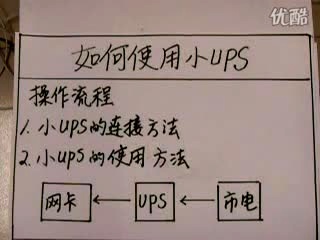 优酷
如何使用小UPS
操作流程
1. 小UPS的连接方法
2. 小UPS的使用方法
网卡 ← UPS ← 市电